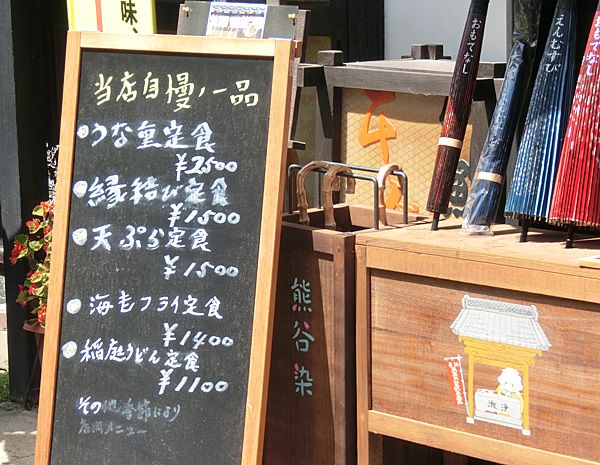 味
当店自慢ノ一品
うな重定食
¥2500
縁結び定食
¥1500
天ぷら定食
¥1500
海老フライ定食
¥1400
稲庭うどん定食
¥1100
その他季節により
熊谷染
おもてなし
おもてなし
えんむすび